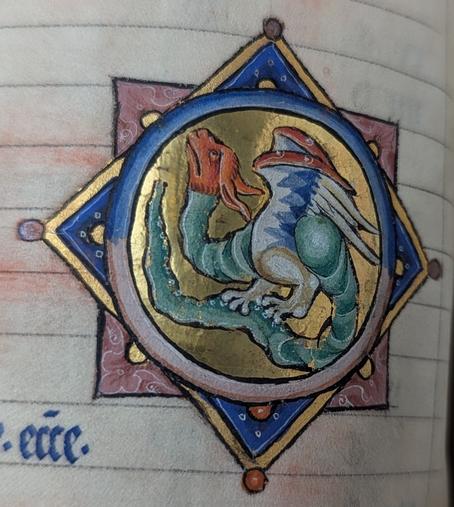 . ecce.